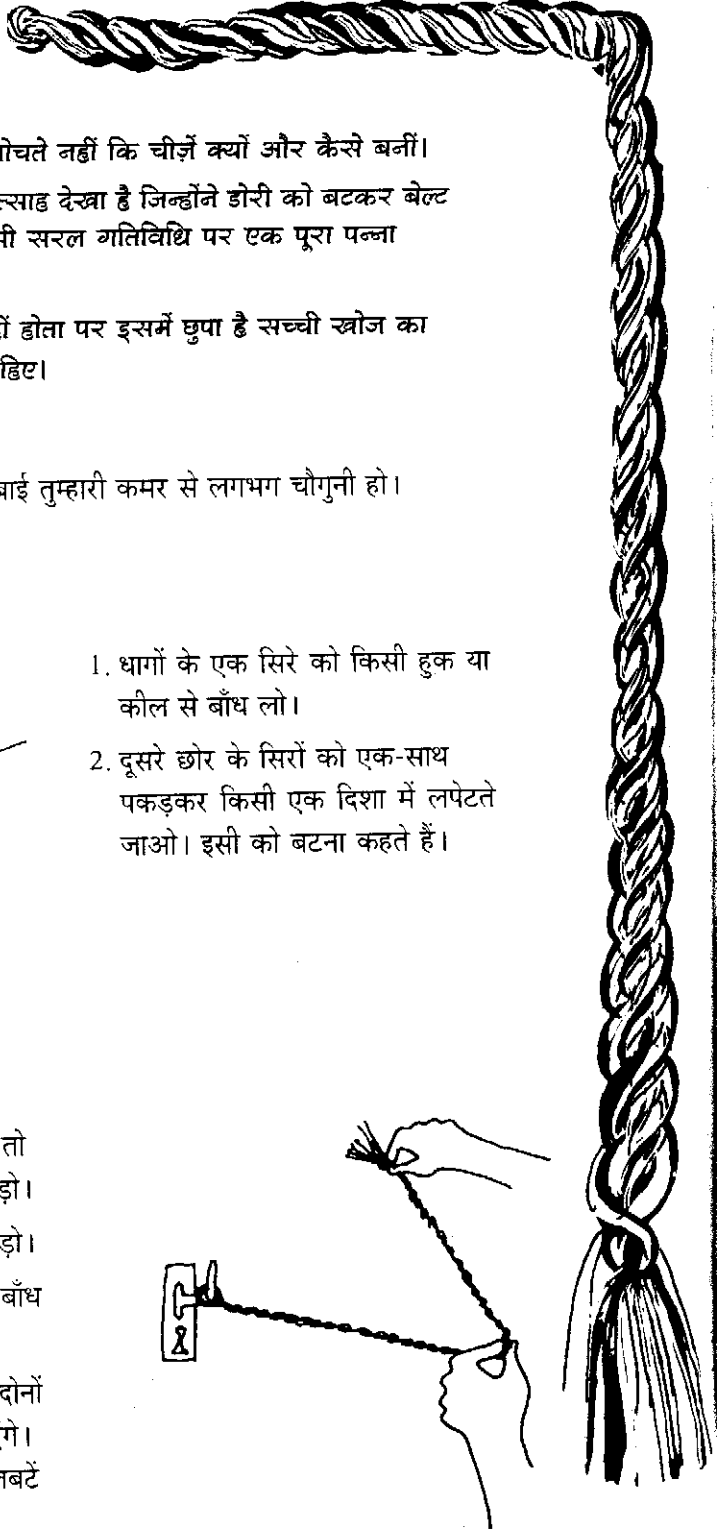 नहीं कि चीज़ें क्यों और कैसे बनीं।
देखा है जिन्होंने डोरी को बटकर बेल्ट
सरल गतिविधि पर एक पूरा पन्ना
होता पर इसमें छुपा है सच्ची खोज का
तुम्हारी कमर से लगभग चौगुनी हो।
1. धागों के एक सिरे को किसी हुक या
कील से बाँध लो।
2. दूसरे छोर के सिरों को एक-साथ
पकड़कर किसी एक दिशा में लपेटते
जाओ। इसी को बटना कहते हैं।
तो
बाँध
दोनों